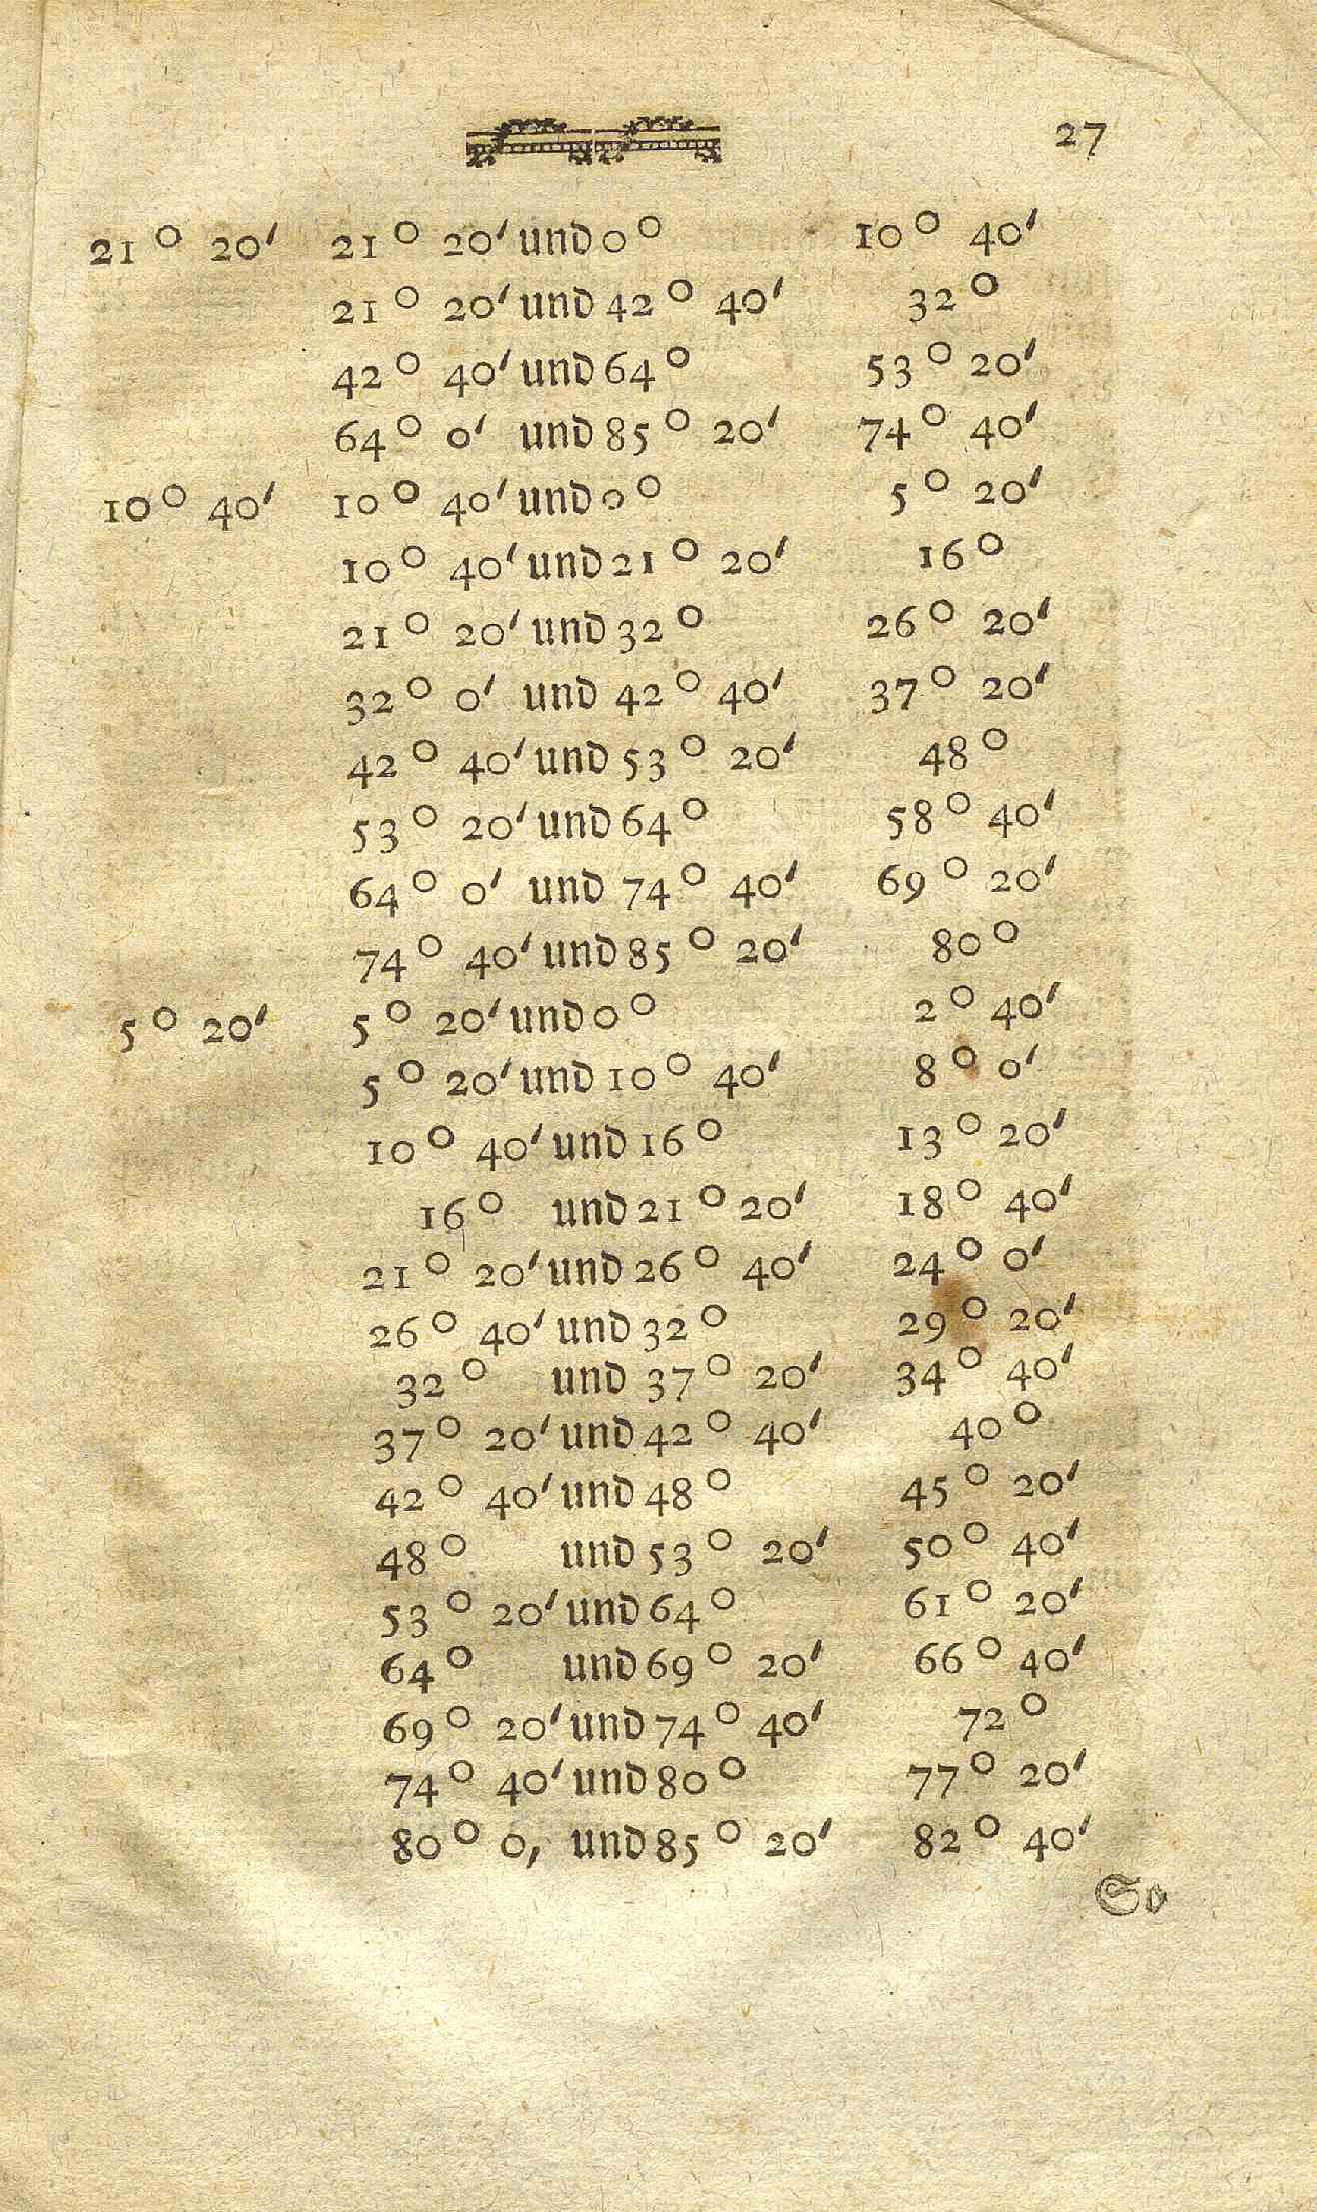 27
21° 20′ 21° 20′ und 0° 10° 40′
21° 20′ und 42° 40′ 32°
42° 40′ und 64° 53° 20′
64° 0′ und 85° 20′ 74° 40′
10° 40′ 10° 40′ und 0° 5° 20′
10° 40′ und 21° 20′ 16°
21° 20′ und 32° 26° 20′
32° 0′ und 42° 40′ 37° 20′
42° 40′ und 53° 20′ 48°
53° 20′ und 64° 58° 40′
64° 0′ und 74° 40′ 69° 20′
74° 40′ und 85° 20′ 80°
5° 20′ 5° 20′ und 0° 2° 40′
5° 20′ und 10° 40′ 8° 0′
10° 40′ und 16° 13° 20′
16° und 21° 20′ 18° 40′
21° 20′ und 26° 40′ 24° 0′
26° 40′ und 32° 29° 20′
32° und 37° 20′ 34° 40′
37° 20′ und 42° 40′ 40°
42° 40′ und 48° 45° 20′
48° und 53° 20′ 50° 40′
53° 20′ und 64° 61° 20′
64° und 69° 20′ 66° 40′
69° 20′ und 74° 40′ 72°
74° 40′ und 80° 77° 20′
80° 0, und 85° 20′ 82° 40′
So